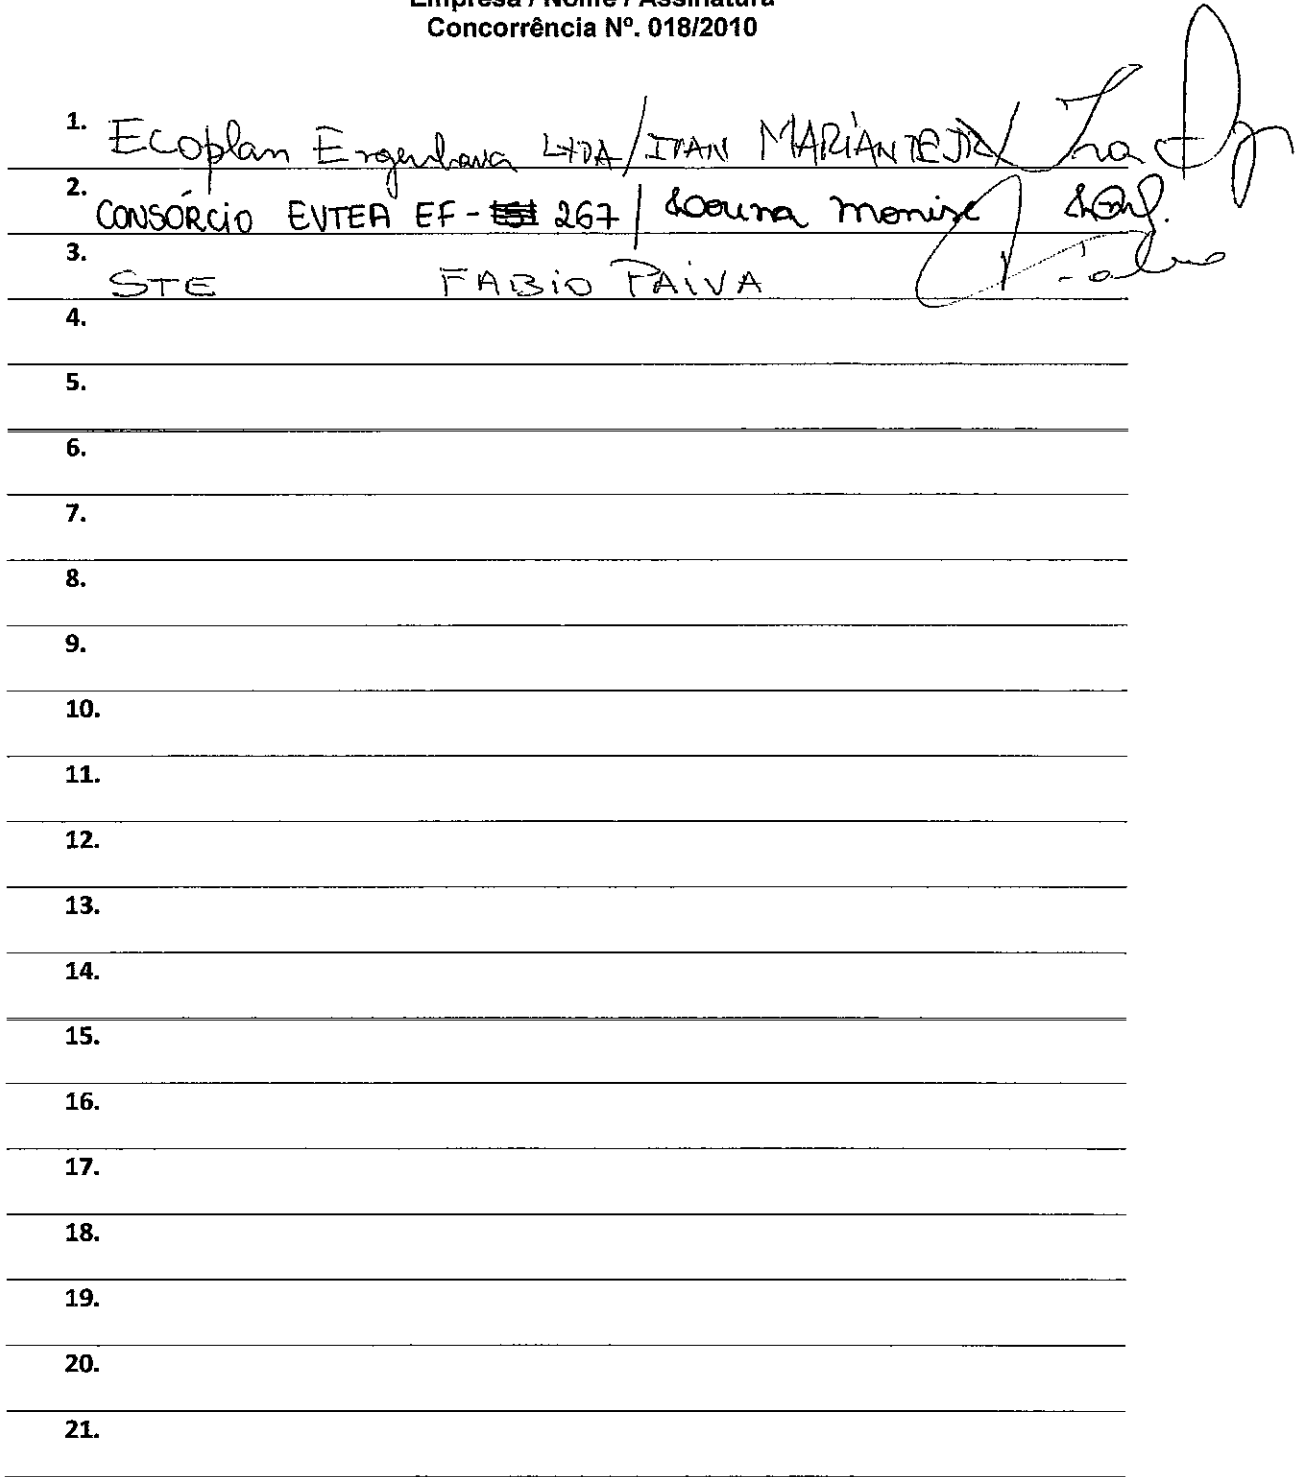 Empresa / Nome / Assinatura
Concorrência Nº. 018/2010
1. Ecoplan Engenharia LTDA / IVAN MARIANTE JR /
2. CONSÓRCIO EVTEA EF- 267 / monise
3. STE FABIO PAIVA
4.
5.
6.
7.
8.
9.
10.
11.
12.
13.
14.
15.
16.
17.
18.
19.
20.
21.